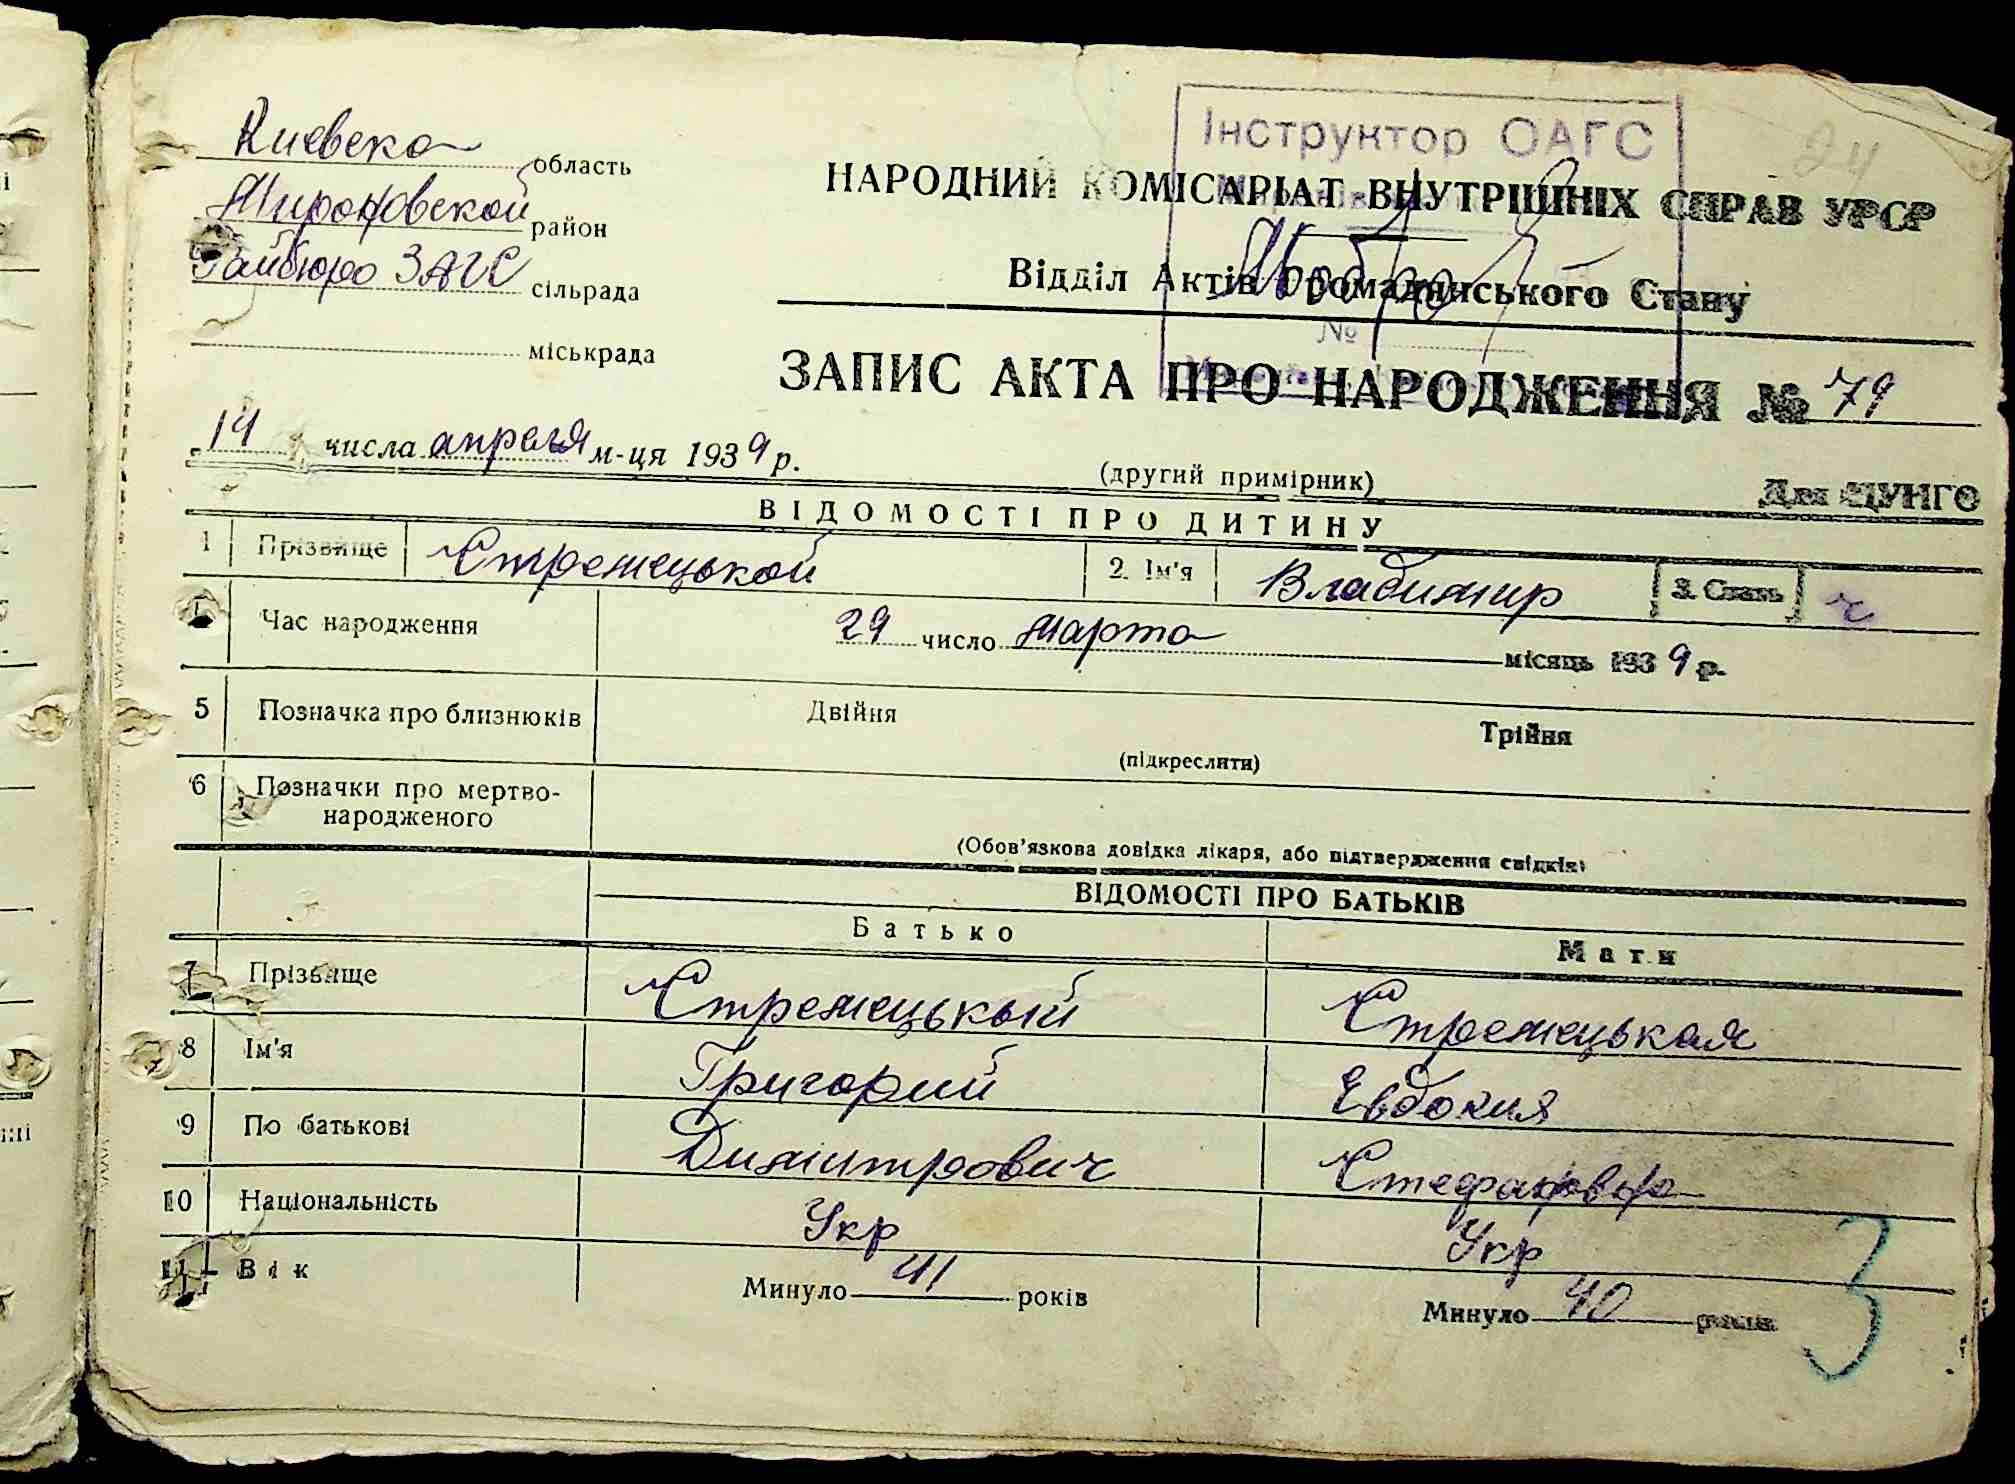 Киевска область
Мироновской район
Райбюро ЗАГС сільрада
міськрада
Інструктор ОАГС
24
НАРОДНИЙ КОМІСАРІАТ ВНУТРІШНІХ СПРАВ УРСР
Відділ Актів Громадянського Стану
№
ЗАПИС АКТА ПРО НАРОДЖЕННЯ № 79
14 числа апреля м-ця 1939 р.
(другий примірник)
Для ЦУНГО
ВІДОМОСТІ ПРО ДИТИНУ
1 Прізвище Стрежецькой 2. Ім'я Владимир 3. Стать ч
Час народження 29 число марта місяць 1939 р.
5 Позначка про близнюків Двійня Трійня
(підкреслити)
6 Позначки про мертво-
народженого
(Обов'язкова довідка лікаря, або підтвердження свідків)
ВІДОМОСТІ ПРО БАТЬКІВ
Батько Мати
7 Прізвище Стрежецькый Стрежецькая
8 Ім'я Григорий Евдокия
9 По батькові Димитрович Стефановна
10 Національність Укр Укр
11 Вік Минуло 41 років Минуло 40 років
3